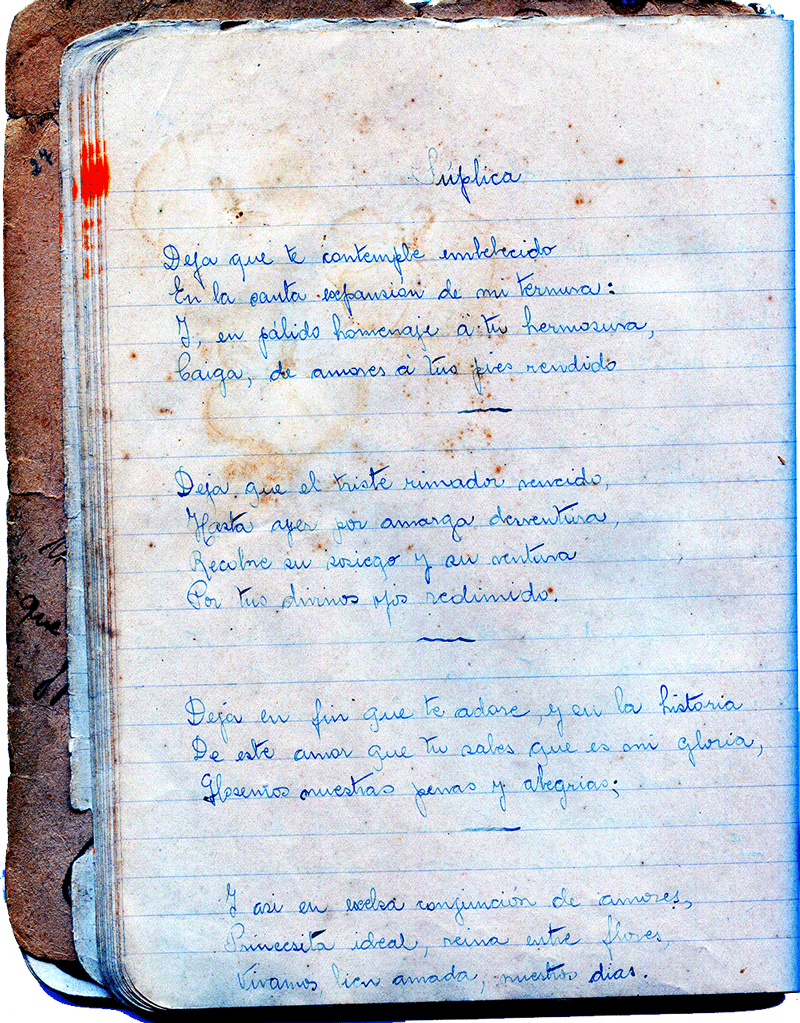 Súplica
Deja que te contemple embebecido
En la santa expansión de mi ternura:
Y, en pálido homenaje á tu hermosura,
Caiga, de amores á tus pies rendido
Deja que el triste rimador vencido,
Hasta ayer por amarga desventura,
Recobre su sosiego y su ventura
Por tus divinos ojos redimido.
Deja en fin que te adore, y en la historia
De este amor que tu sabes que es mi gloria,
Glosemos nuestras penas y alegrias;
Y asi en excelsa conjunción de amores,
Princesita ideal, reina entre flores,
Vivamos bien amada, nuestros dias.
27
que